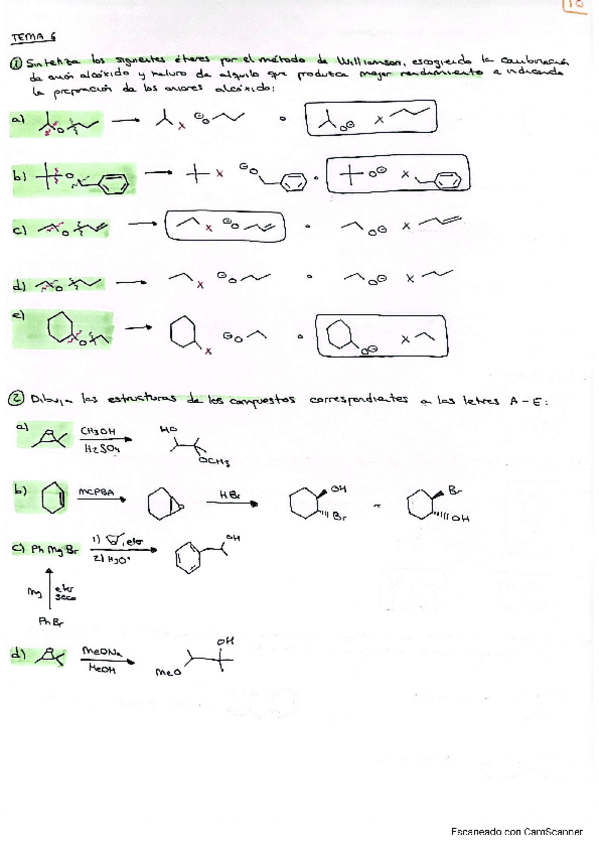 10
TEMA 6
① Sintetiza los siguientes éteres por el método de Williamson, escogiendo la combinación
de anión alcóxido y haluro de alquilo que produzca mejor rendimiento e indicando
la preparación de los aniones alcóxido:
a) O X ⊖O o O⊖ X
b) O X ⊖O o O⊖ X
c) O X ⊖O o O⊖ X
d) O X ⊖O o O⊖ X
e) O X ⊖O o O⊖ X
② Dibuja las estructuras de los compuestos correspondientes a las letras A-E:
a) O CH3OH H2SO4 HO OCH3
b) MCPBA O HBr OH Br + Br OH
c) PhMgBr 1) O, eter 2) H3O+ OH
Mg eter seco
PhBr
d) O MeONa MeOH MeO OH
Escaneado con CamScanner